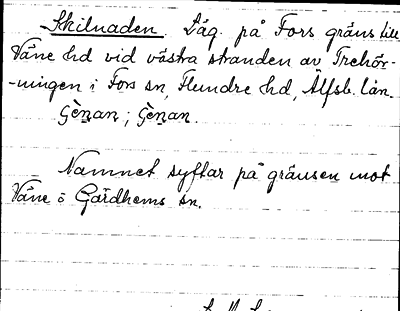 Skilnaden. Låg. på Fors gräns till
Väne hd vid västra stranden av Trehör-
-ningen i Fors sn, Flundre hd, Älfsb. län.
Gènan; Gènan.
Namnet syftar på gränsen mot
Väne o Gärdhems sn.